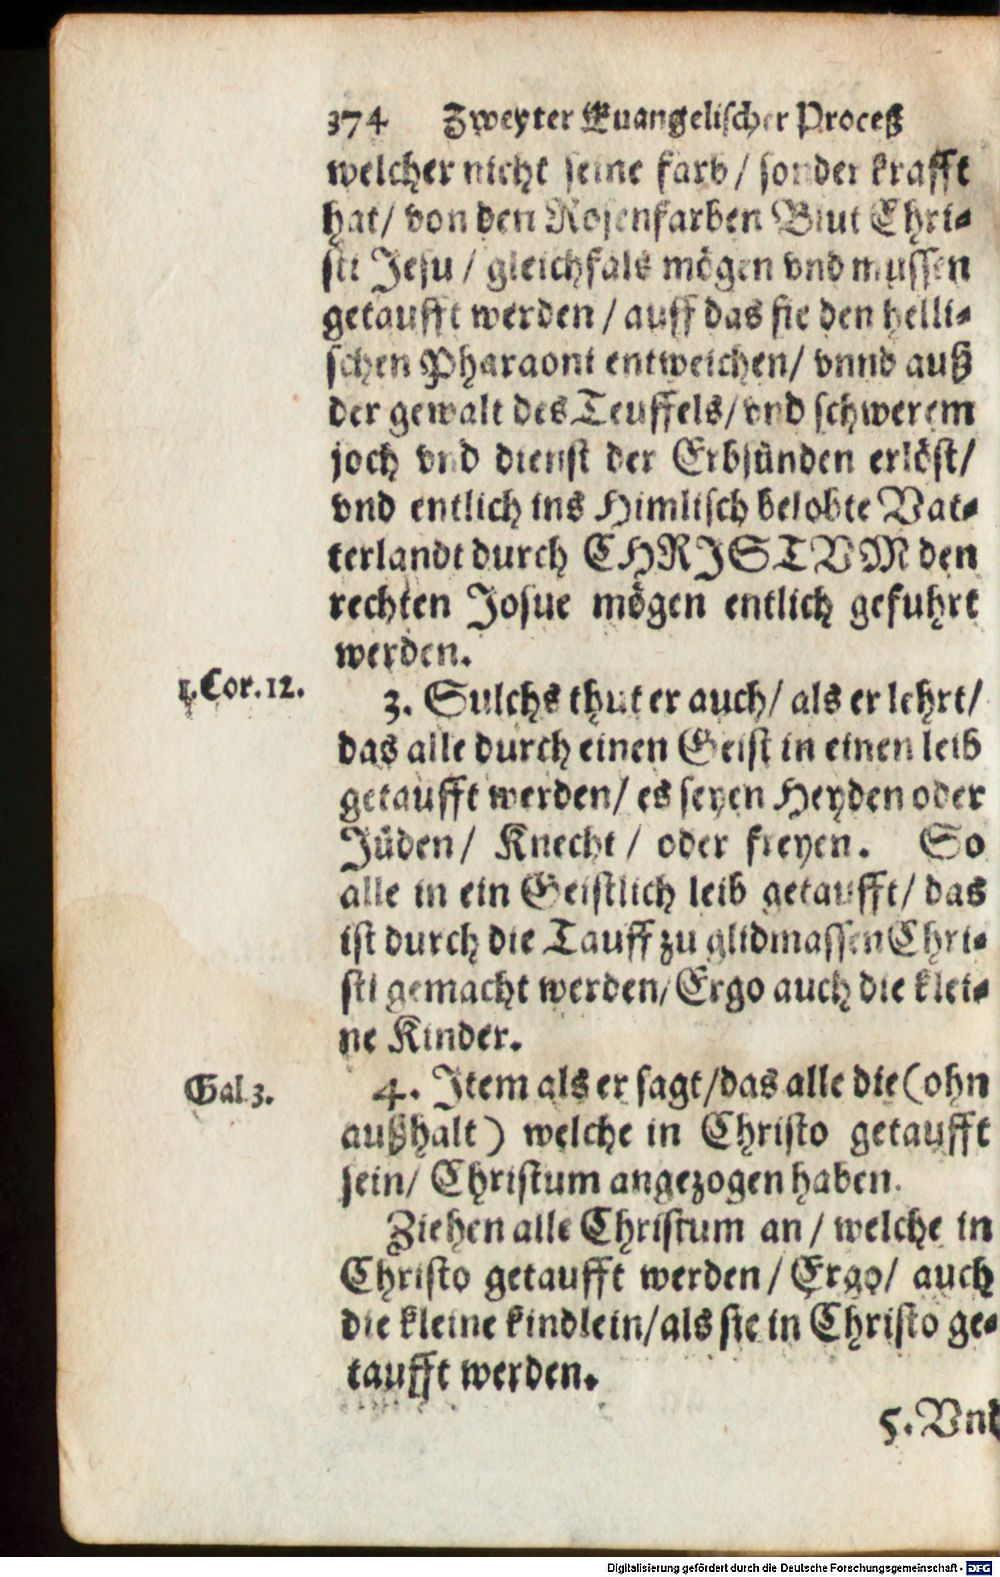 374 Zweyter Euangelischer Proceß
welcher nicht seine farb / sonder krafft
hat / von den Rosenfarben Blut Chri-
sti Jesu / gleichfals mögen vnd mussen
getaufft werden / auff das sie den helli-
schen Pharaoni entweichen / vnnd auß
der gewalt des Teuffels / vnd schwerem
joch vnd dienst der Erbsünden erlöst /
vnd entlich ins Himlisch belobte Vat-
terlandt durch CHRISTVM den
rechten Josue mögen entlich gefuhrt
werden.
1. Cor. 12. 3. Sulchs thut er auch / als er lehrt /
das alle durch einen Geist in einen leib
getaufft werden / es seyen Heyden oder
Jüden / Knecht / oder freyen. So
alle in ein Geistlich leib getaufft / das
ist durch die Tauff zu glidmassen Chri-
sti gemacht werden / Ergo auch die klei-
ne Kinder.
Gal 3. 4. Item als er sagt / das alle die (ohn
außhalt) welche in Christo getaufft
sein / Christum angezogen haben.
Ziehen alle Christum an / welche in
Christo getaufft werden / Ergo / auch
die kleine kindlein / als sie in Christo ge-
taufft werden.
5. Vnd
Digitalisierung gefördert durch die Deutsche Forschungsgemeinschaft - DFG